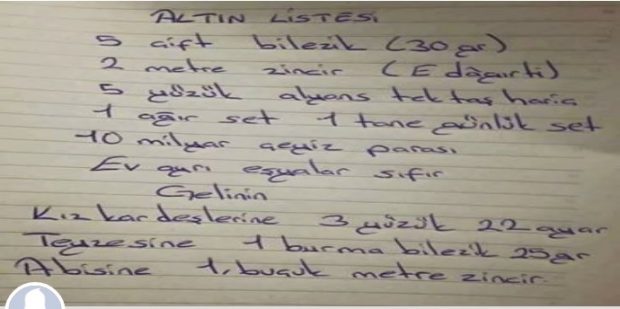 ALTIN LİSTESİ
5 çift bilezik (30 gr)
2 metre zincir (E dağıtı)
5 yüzük alyans tek taş hariç
1 ağır set 1 tane günlük set
10 milyar çeyiz parası
Ev ayrı eşyalar sıfır
Gelinin
Kız kardeşlerine 3 yüzük 22 ayar
Teyzesine 1 burma bilezik 25 gr
Abisine 1, buçuk metre zincir